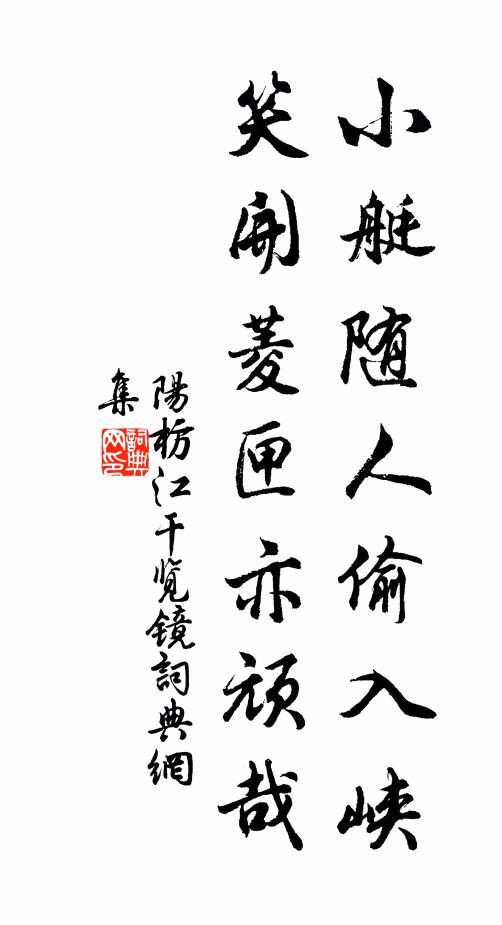 小艇随人偷入峡
笑開菱匣亦頑哉
陽枋江干览鏡詞典網
集
詞典
网印